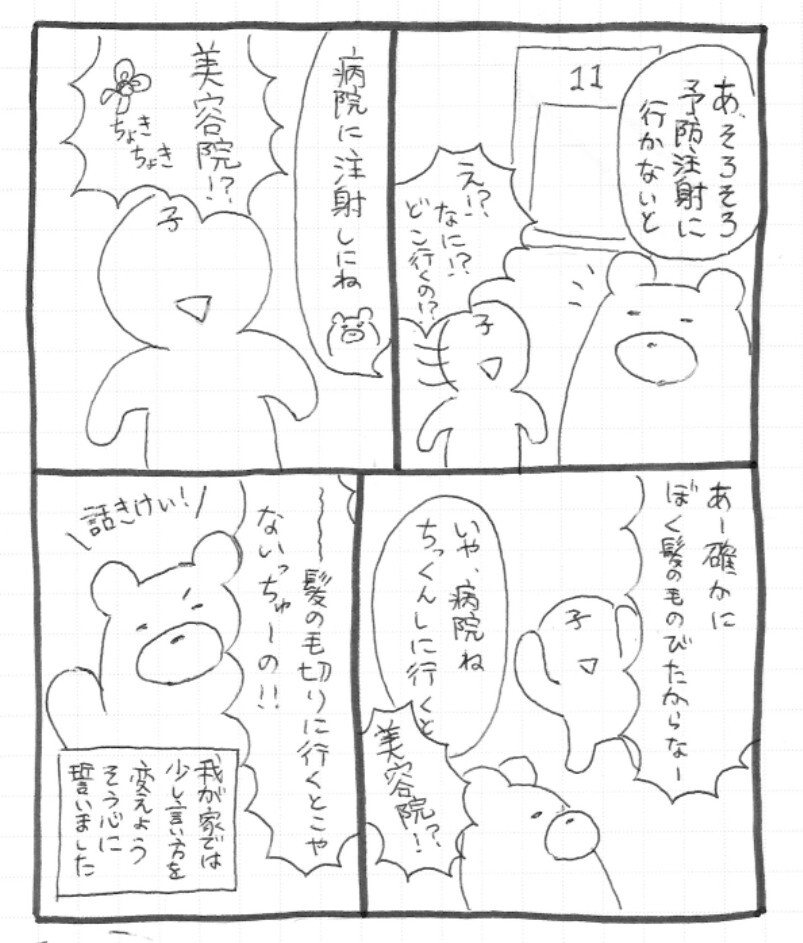 11
あ、そろそろ
予防注射に
行かないと
え!?
なに!?
どこ行くの!?
子
病院に注射しにね
美容院!?
ちょき
ちょき
子
あー確かに
ぼく髪の毛のびたからなー
子
いや、病院ね
ちっくんしに行くと
美容院!?
〜〜〜髪の毛切りに行くとこや
ないっちゅーの!!
話きけぃ!
我が家では
少し言い方を
変えよう
そう心に
誓いました